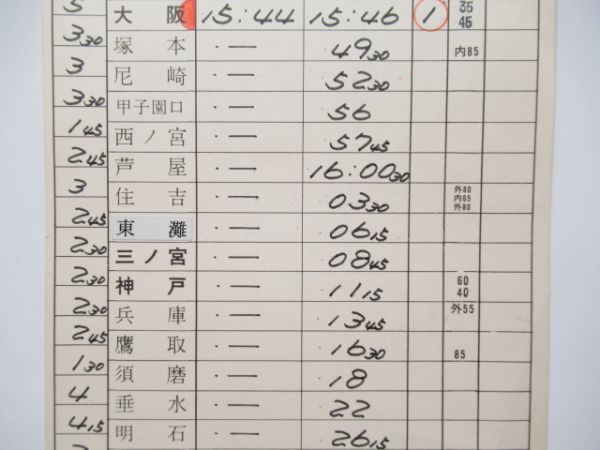 5 大阪 15:44 15:46 1 35 45
3 30 塚本 ・ー 49 30 内85
3 尼崎 ・ー 52 30
3 30 甲子園口 ・ー 56
1 45 西ノ宮 ・ー 57 45
2 45 芦屋 ・ー 16:00 30
3 住吉 ・ー 03 30 外80 内65 外80
2 45 東灘 ・ー 06 15
2 30 三ノ宮 ・ー 08 45
2 30 神戸 ・ー 11 15 60 40
2 30 兵庫 ・ー 13 45 外55
2 45 鷹取 ・ー 16 30 85
1 30 須磨 ・ー 18
4 垂水 ・ー 22
4 15 明石 ・ー 26 15